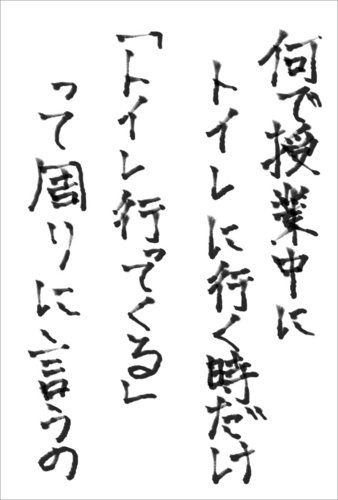 何で授業中に
トイレに行く時だけ
「トイレ行ってくる」
って周りに言うの